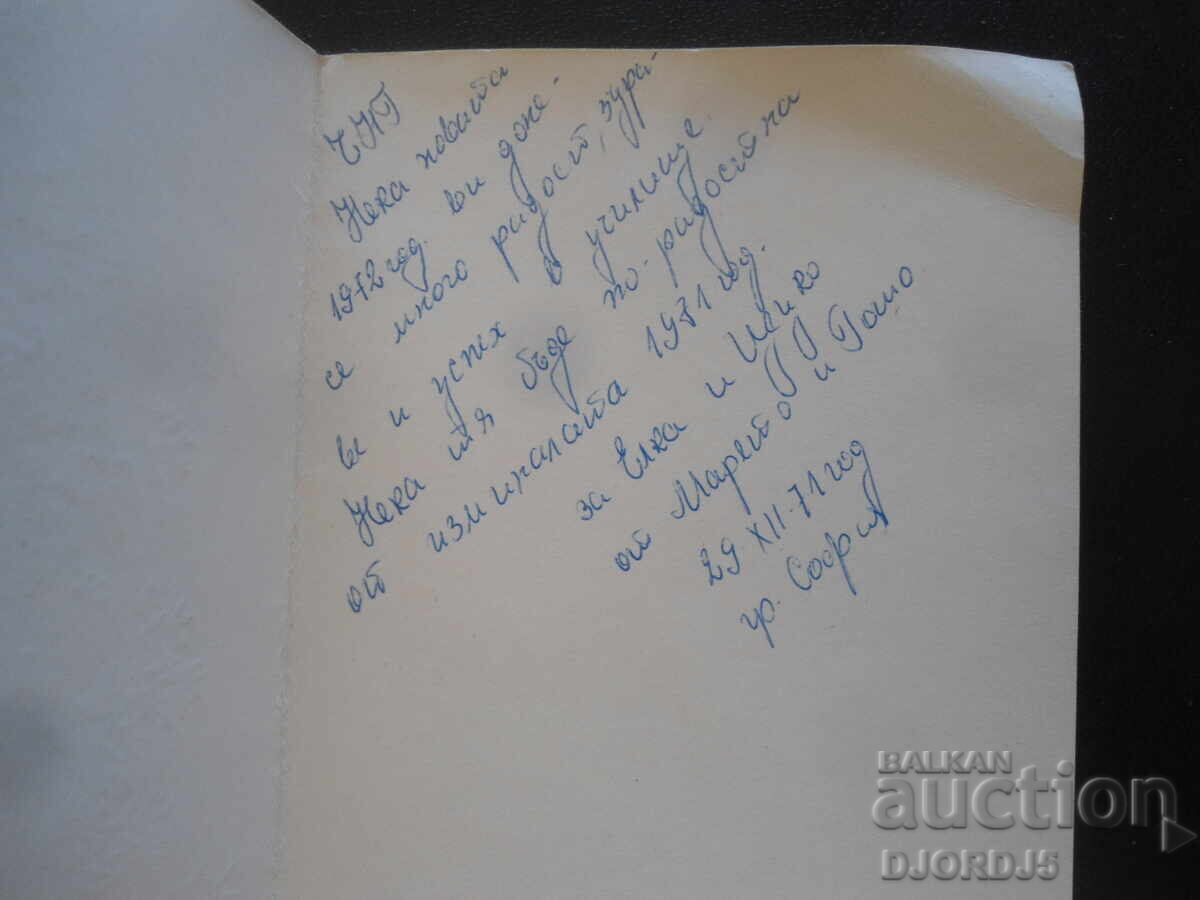 ЧНГ
Нека новата
1972 год. ви доне-
се много радост, здра-
ве и успех в училище.
Нека тя бъде по-радостна
от изминалата 1971 год.
за Елка и Цанко
от Марето и Гошо
29 XII.71 год
гр. София
BALKAN
auction
DJORDJ5